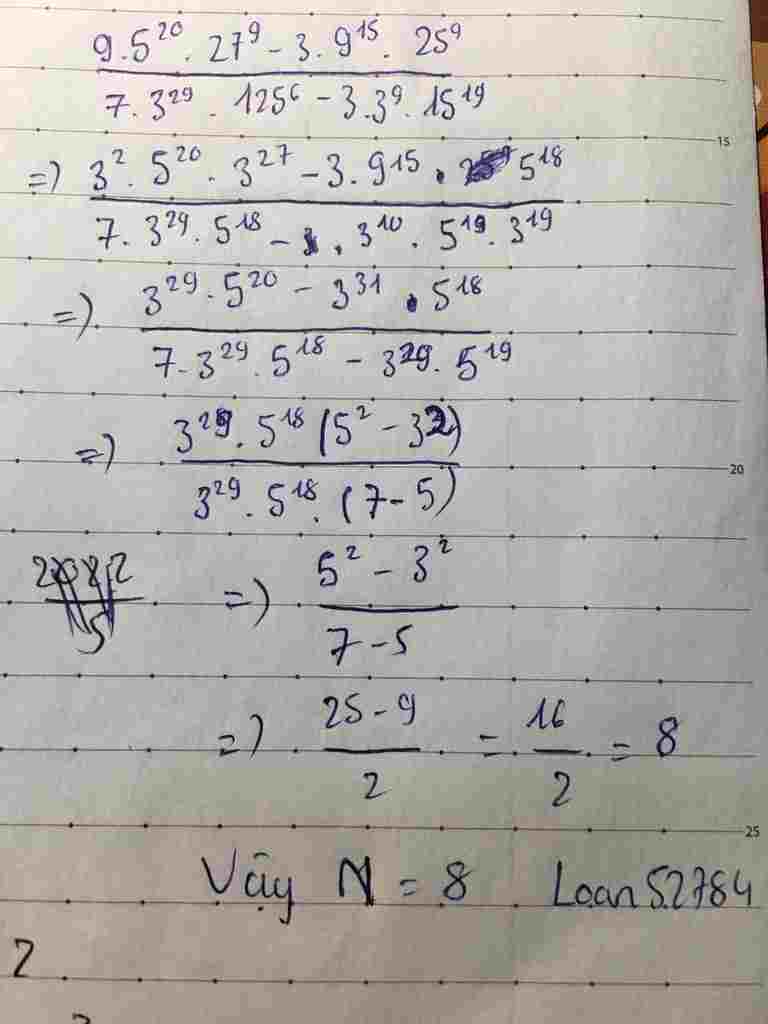 9.5²⁰.27⁹ - 3.9¹⁵.25⁹
7.3²⁹.125⁶ - 3.3⁹.15¹⁹
15
=) 3².5²⁰.3²⁷ - 3.9¹⁵.5¹⁸
7.3²⁹.5¹⁸ - .3¹⁰.5¹⁹.3¹⁹
=) 3²⁹.5²⁰ - 3³¹.5¹⁸
7.3²⁹.5¹⁸ - 3²⁹.5¹⁹
=) 3²⁹.5¹⁸(5² - 3²)
20
3²⁹.5¹⁸.(7-5)
=) 5² - 3²
7-5
=) 25-9 = 16 = 8
2 2
25
Vậy N = 8 Loan52784
2